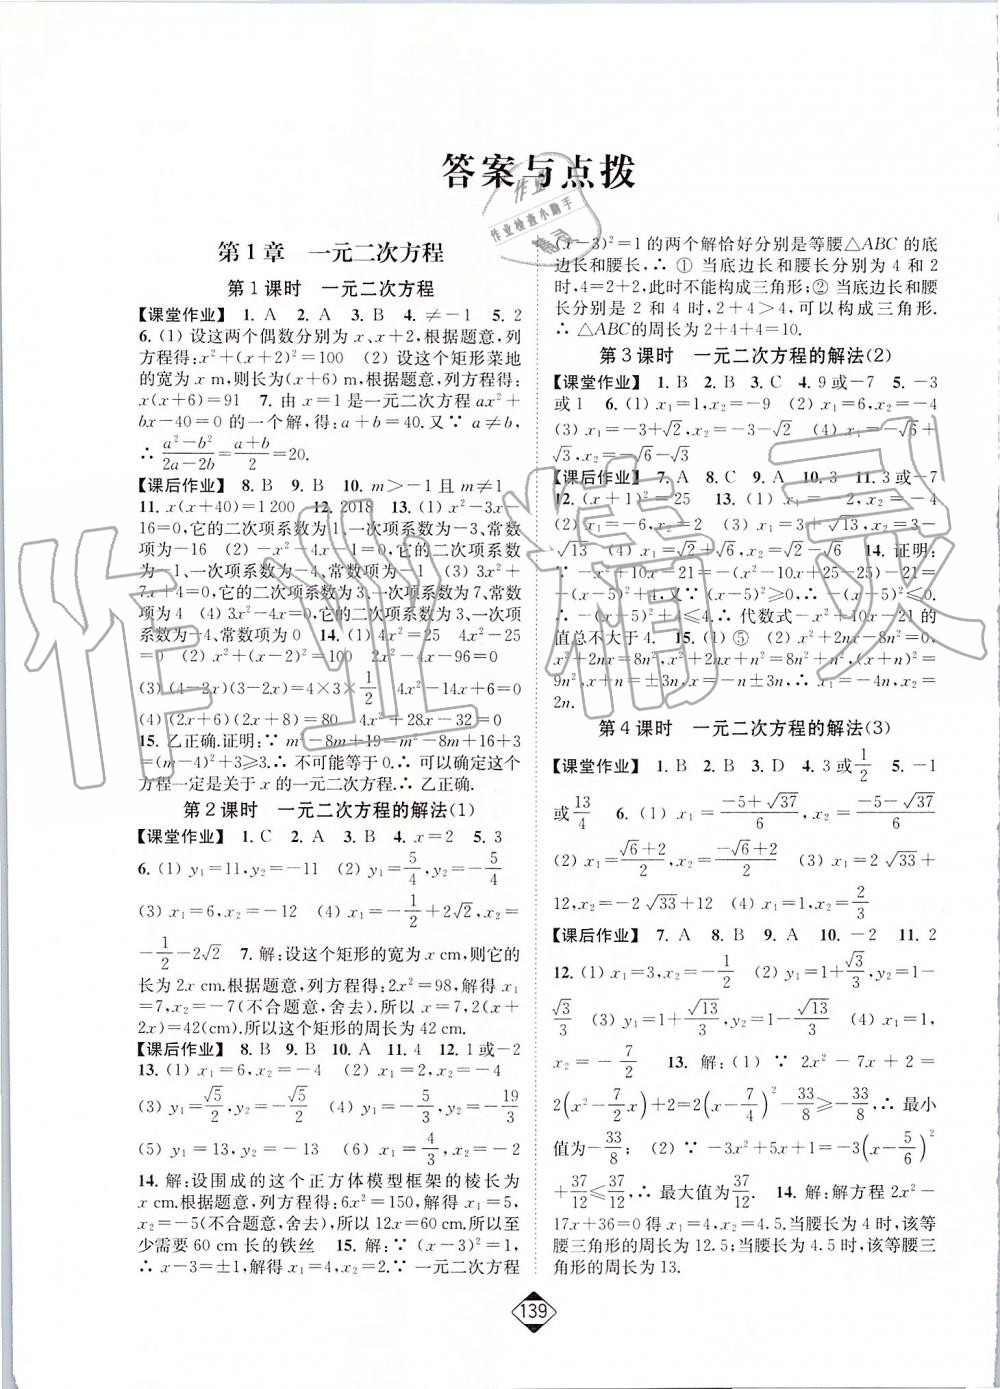 答案与点拨
第1章 一元二次方程
第1课时 一元二次方程
【课堂作业】 1. A 2. A 3. B 4. ≠-1 5. 2
6. (1) 设这两个偶数分别为x,x+2,根据题意,列
方程得:x²+(x+2)²=100 (2) 设这个矩形菜地
的宽为x m,则长为(x+6) m,根据题意,列方程得:
x(x+6)=91 7. 由x=1是一元二次方程ax²+
bx-40=0的一个解,得:a+b=40.又∵ a≠b,
∴ (a²-b²)/(2a-2b)=(a+b)/2=20.
【课后作业】 8. B 9. B 10. m>-1且m≠1
11. x(x+40)=1200 12. 2018 13. (1) x²-3x-
16=0,它的二次项系数为1,一次项系数为-3,常数
项为-16 (2) -x²-4x-1=0,它的二次项系数
为-1,一次项系数为-4,常数项为-1 (3) 3x²+
7x+4=0,它的二次项系数为3,一次项系数为7,常数
项为4 (4) 3x²-4x=0,它的二次项系数为3,一次项
系数为-4,常数项为0 14. (1) 4x²=25 4x²-25
=0 (2) x²+(x-2)²=(x+8)² x²-4x-96=0
(3) (4-2x)(3-2x)=4×3×1/2 4x²-14x+6=0
(4) (2x+6)(2x+8)=80 4x²+28x-32=0
15. 乙正确.证明:∵ m²-8m+19=m²-8m+16+3
=(m-4)²+3≥3.∴ 不可能等于0.∴ 可以确定这个
方程一定是关于x的一元二次方程.∴ 乙正确.
第2课时 一元二次方程的解法(1)
【课堂作业】 1. C 2. A 3. B 4. x=2 5. 3
6. (1) y₁=11,y₂=-1 (2) y₁=5/4,y₂=-5/4
(3) x₁=6,x₂=-12 (4) x₁=-1/2+2√2,x₂=
-1/2-2√2 7. 解:设这个矩形的宽为x cm,则它的
长为2x cm.根据题意,列方程得:2x²=98,解得x₁
=7,x₂=-7(不合题意,舍去).所以x=7,2(x+
2x)=42(cm).所以这个矩形的周长为42 cm.
【课后作业】 8. B 9. B 10. A 11. 4 12. 1或-2
13. (1) x₁=6,x₂=-4 (2) x₁=2,x₂=-4
(3) y₁=√5/2,y₂=-√5/2 (4) y₁=-5/3,y₂=-19/3
(5) y₁=13,y₂=-13 (6) x₁=4/3,x₂=-2
14. 解:设围成的这个正方体模型框架的棱长为
x cm.根据题意,列方程得:6x²=150,解得x₁=5,
x₂=-5(不合题意,舍去).所以12x=60 cm.所以至
少需要60 cm长的铁丝 15. 解:∵ (x-3)²=1,
∴ x-3=±1,解得x₁=4,x₂=2.∵ 一元二次方程
(x-3)²=1的两个解恰好分别是等腰△ABC的底
边长和腰长,∴ ① 当底边长和腰长分别为4和2
时,4=2+2,此时不能构成三角形;② 当底边长和腰
长分别是2和4时,2+4>4,可以构成三角形.
∴ △ABC的周长为2+4+4=10.
第3课时 一元二次方程的解法(2)
【课堂作业】 1. B 2. B 3. C 4. 9或-7 5. -3
或1 6. (1) x₁=1,x₂=-9 (2) x₁=6,x₂=-4
(3) x₁=-3+√2,x₂=-3-√2 (4) x₁=-√6+
√3,x₂=-√6-√3
【课后作业】 7. A 8. C 9. A 10. 3 11. 3或-7
12. (x+1)²=25 13. (1) x₁=2,x₂=-4
(2) x₁=5,x₂=-1 (3) x₁=3+√13,x₂=3-
√13 (4) x₁=√2+√6,x₂=√2-√6 14. 证明:
∵ -x²+10x-21=-(x²-10x+25-25)-21=
-(x-5)²+4,又∵ (x-5)²≥0,∴ -(x-5)²≤0.
∴ -(x-5)²+4≤4.∴ 代数式-x²+10x-21的
值总不大于4. 15. (1) ⑤ (2) x²+2nx-8n²=0,
x²+2nx=8n²,x²+2nx+n²=8n²+n²,(x+n)²=
9n²,x+n=±3n,x=-n±3n,x₁=-4n,x₂=
2n.
第4课时 一元二次方程的解法(3)
【课堂作业】 1. B 2. B 3. D 4. 3或1/2 5. -1
或13/4 6. (1) x₁=(-5+√37)/6,x₂=(-5-√37)/6
(2) x₁=(√6+2)/2,x₂=(-√6+2)/2 (3) x₁=2√33+
12,x₂=-2√33+12 (4) x₁=1,x₂=2/3
【课后作业】 7. A 8. B 9. A 10. -2 11. 2
12. (1) x₁=3,x₂=-1/2 (2) y₁=1+√3/3,y₂=1-
√3/3 (3) y₁=1+√13/3,y₂=1-√13/3 (4) x₁=1,
x₂=-7/2 13. 解:(1) ∵ 2x²-7x+2=
2(x²-7/2x)+2=2(x-7/4)²-33/8≥-33/8,∴ 最小
值为-33/8; (2) ∵ -3x²+5x+1=-3(x-5/6)²
+37/12≤37/12,∴ 最大值为37/12. 14. 解:解方程2x²-
17x+36=0得x₁=4,x₂=4.5.当腰长为4时,该等
腰三角形的周长为12.5;当腰长为4.5时,该等腰三
角形的周长为13.
139
作业
作业检查小助手
精灵
作业精灵